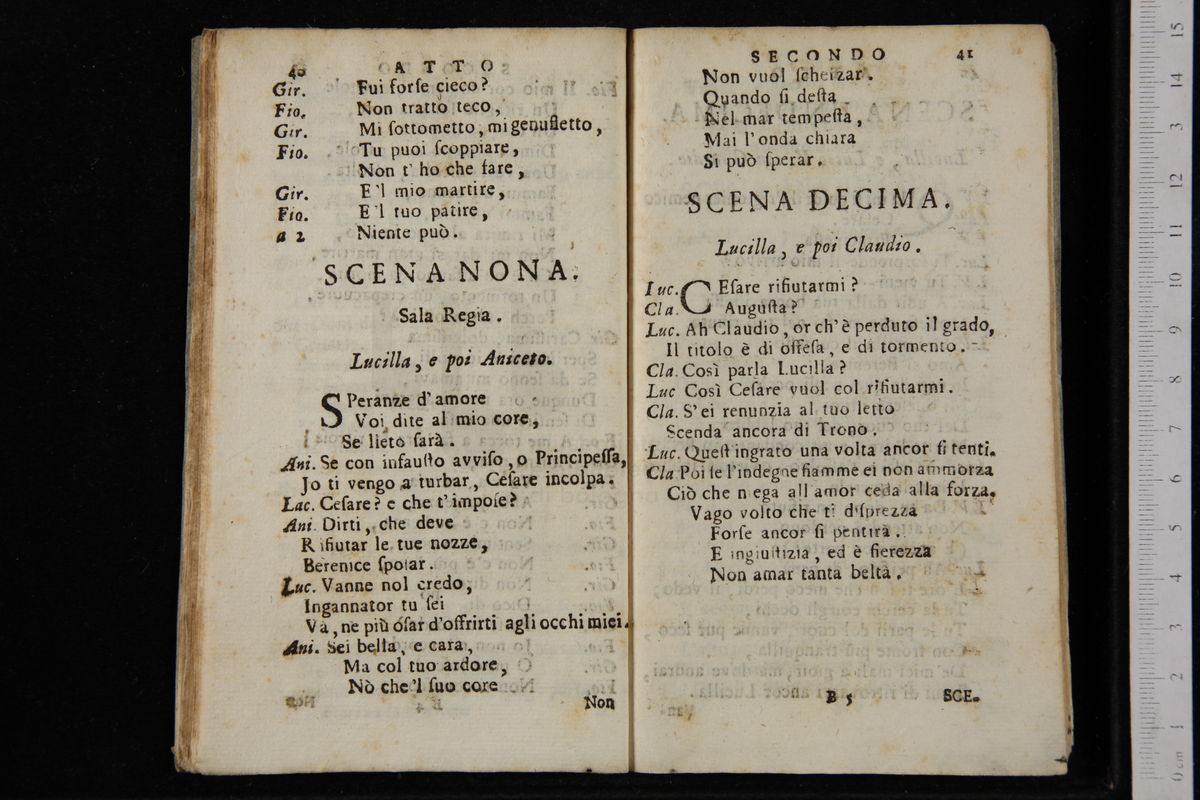 40 ATTO
Gir. Fui forſe cieco?
Fio. Non tratto teco,
Gir. Mi ſottometto, mi genufletto,
Fio. Tu puoi ſcoppiare,
Non t' ho che fare,
Gir. E'l mio martire,
Fio. E'l tuo patire,
a 2 Niente può.
SCENA NONA.
Sala Regia.
Lucilla, e poi Aniceto.
SPeranze d' amore
Voi dite al mio core,
Se lieto ſarà.
Ani. Se con infauſto avviſo, o Principeſſa,
Jo ti vengo a turbar, Ceſare incolpa.
Lac. Ceſare? e che t'impoſe?
Ani. Dirti, che deve
Rifiutar le tue nozze,
Berenice ſpoſar.
Luc. Vanne nol credo,
Ingannator tu ſei
Va, ne più oſar d'offrirti agli occhi miei.
Ani. Sei bella, e cara,
Ma col tuo ardore,
Nò che'l ſuo core
Non
SECONDO 41
Non vuol ſcherzar.
Quando ſi deſta
Nel mar tempeſta,
Mai l'onda chiara
Si può ſperar.
SCENA DECIMA.
Lucilla, e poi Claudio.
Luc. CEſare rifiutarmi?
Cla. Auguſta?
Luc. Ah Claudio, or ch'è perduto il grado,
Il titolo è di offeſa, e di tormento.
Cla. Così parla Lucilla?
Luc Così Ceſare vuol col rifiutarmi.
Cla. S'ei renunzia al tuo letto
Scenda ancora di Trono.
Luc. Queſt ingrato una volta ancor ſi tenti.
Cla Poi ſe l'indegne fiamme ei non ammorza
Ciò che nega all amor ceda alla forza.
Vago volto che ti diſprezza
Forſe ancor ſi pentirà.
E ingiuſtizia, ed è fierezza
Non amar tanta beltà.
B 5 SCE-